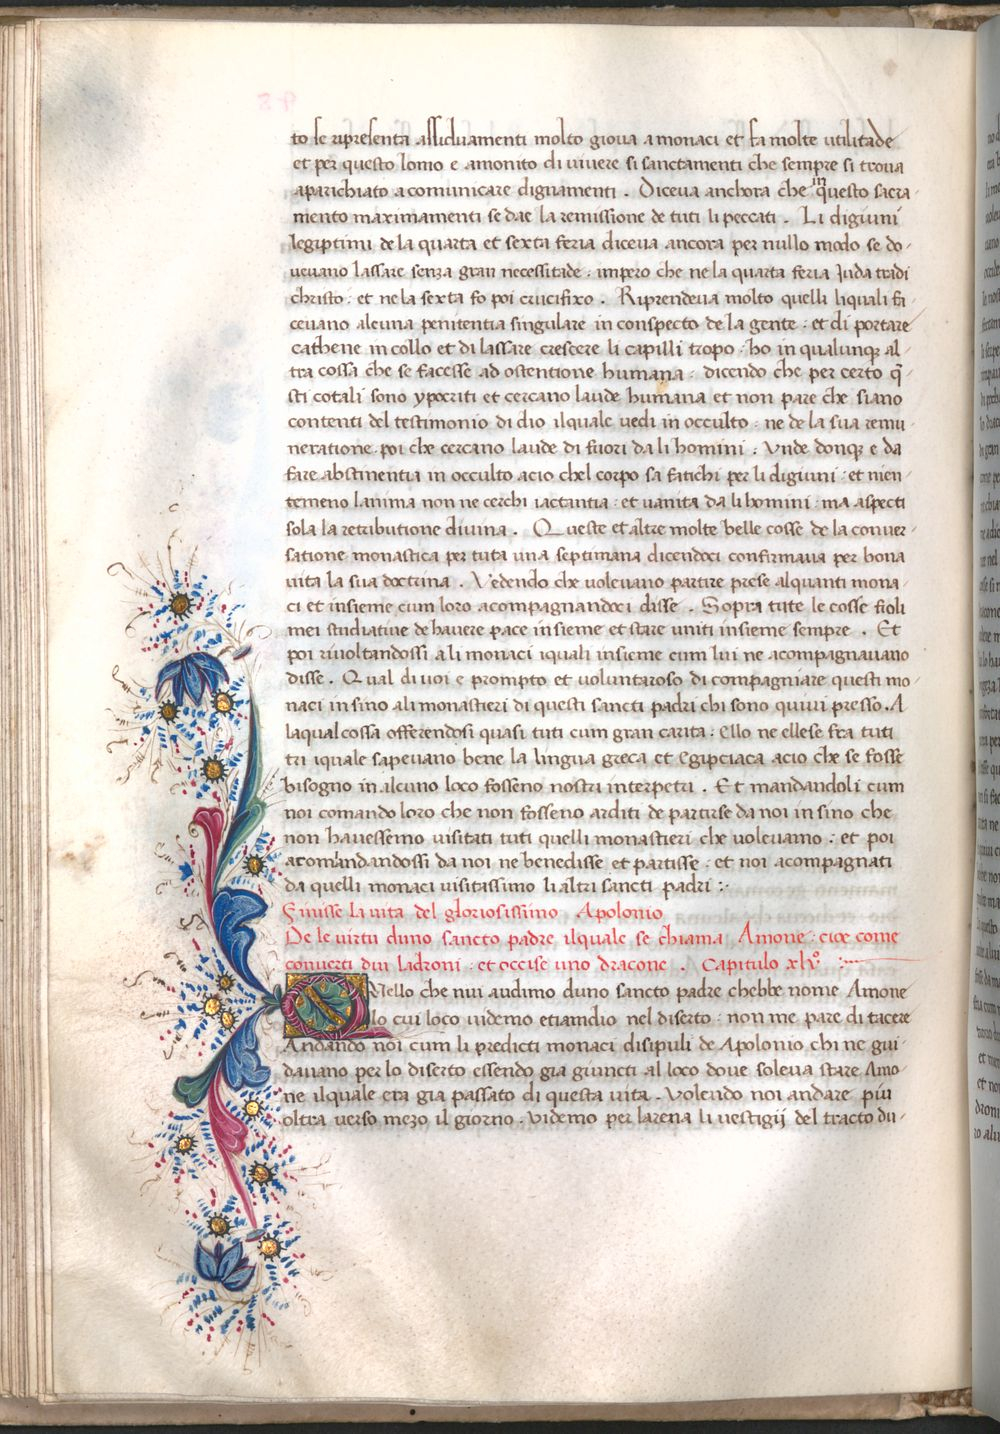 to se ripresenta assiduamenti molto gioua a monaci et fa molte utilitade
et per questo lomo e amonito di uiuere si sanctamenti che sempre si troua
aparichiato a comunicare dignamenti . Diceua anchora che in questo sacra
mento maximamenti se dae la remissione de tuti li peccati . Li digiuni
legiptimi de la quarta et sexta feria diceua ancora per nullo modo se do
ueuano lassare senza gran necessitade : impero che ne la quarta feria Iuda tradi
christo : et ne la sexta fo poi crucifixo . Riprendeua molto quelli liquali fa
ceuano alcuna penitentia singulare in conspecto de la gente : et di portare
cathene in collo et di lassare crescere li capilli tropo : ho in qualunqꝫ al
tra cossa che se facesse ad ostentione humana : dicendo che per certo q̄
sti cotali sono ypocriti et cercano laude humana et non pare che siano
contenti del testimonio di dio ilquale uedi in occulto : ne de la sua remu
neratione . poi che cercano laude di fuori da li homini : Vnde donqꝫ e da
fare abstinentia in occulto acio chel corpo sa fatichi per li digiuni : et nien
temeno lanima non ne cerchi iactantia : et uanita da li homini : ma aspecti
sola la retributione diuina . Queste et altre molte belle cosse de la conuer
satione monastica per tuta una septimana dicendoci confirmaua per bona
uita la sua doctrina . Vedendo che uoleuano partire prese alquanti mona
ci et insieme cum loro acompagnandoci disse . Sopra tute le cosse fioli
mei studiatiue de hauere pace insieme et stare uniti insieme sempre . Et
poi riuoltandossi a li monaci iquali insieme cum lui ne acompagnauano
disse . Qual di uoi e prompto et uoluntaroso di compagniare questi mo
naci in sino ali monastieri di questi sancti padri chi sono quiui presso . A
laqual cossa offerendosi quasi tuti cum gran carita : ello ne ellese fra tuti
tri iquale sapeuano bene la lingua greca et Egipciaca acio che se fosse
bisogno in alcuno loco fosseno nostri interpetri . Et mandandoli cum
noi comando loro che non fosseno arditi de partirse da noi in sino che
non hauessemo uisitati tuti quelli monastieri che uoleuamo : et poi
acomandandossi da noi ne benedisse et partisse : et noi acompagnati
da quelli monaci uisitassimo li altri sancti padri :
Finisse la uita del gloriosissimo Apolonio
De le uirtu duno sancto padre ilquale se chiama Amone : cioe come
conuerti dui ladroni : et occise uno dracone . Capitulo xlvº
Quello che nui audimo duno sancto padre chebbe nome Amone
lo cui loco uidemo etiamdio nel diserto : non me pare di tacere
Andando noi cum li predicti monaci disipuli de Apolonio chi ne gui
dauano per lo diserto essendo gia giuncti al loco doue soleua stare Amo
ne ilquale era gia passato di questa uita . Volendo noi andare piu
oltra uerso mezo il giorno . uidemo per larena li uestigij del tracto du